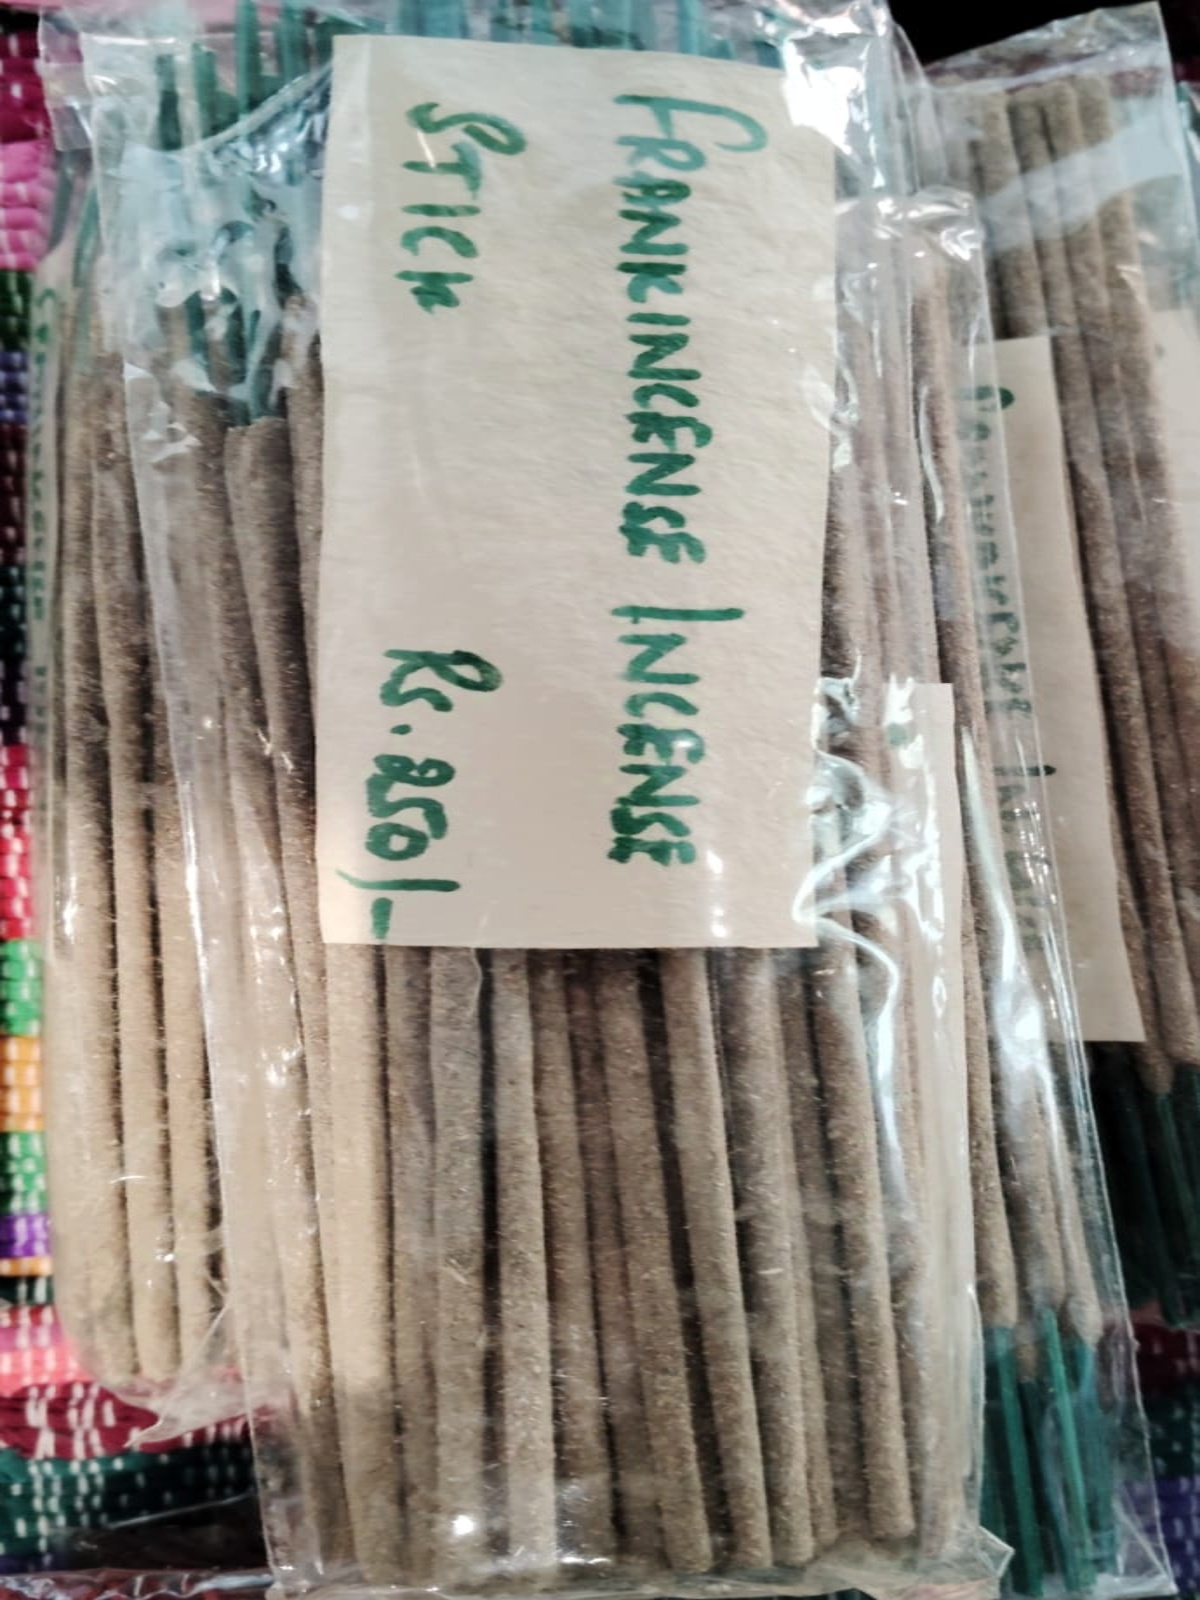 FRANKINCENSE INCENSE
STICK Rs. 250/-